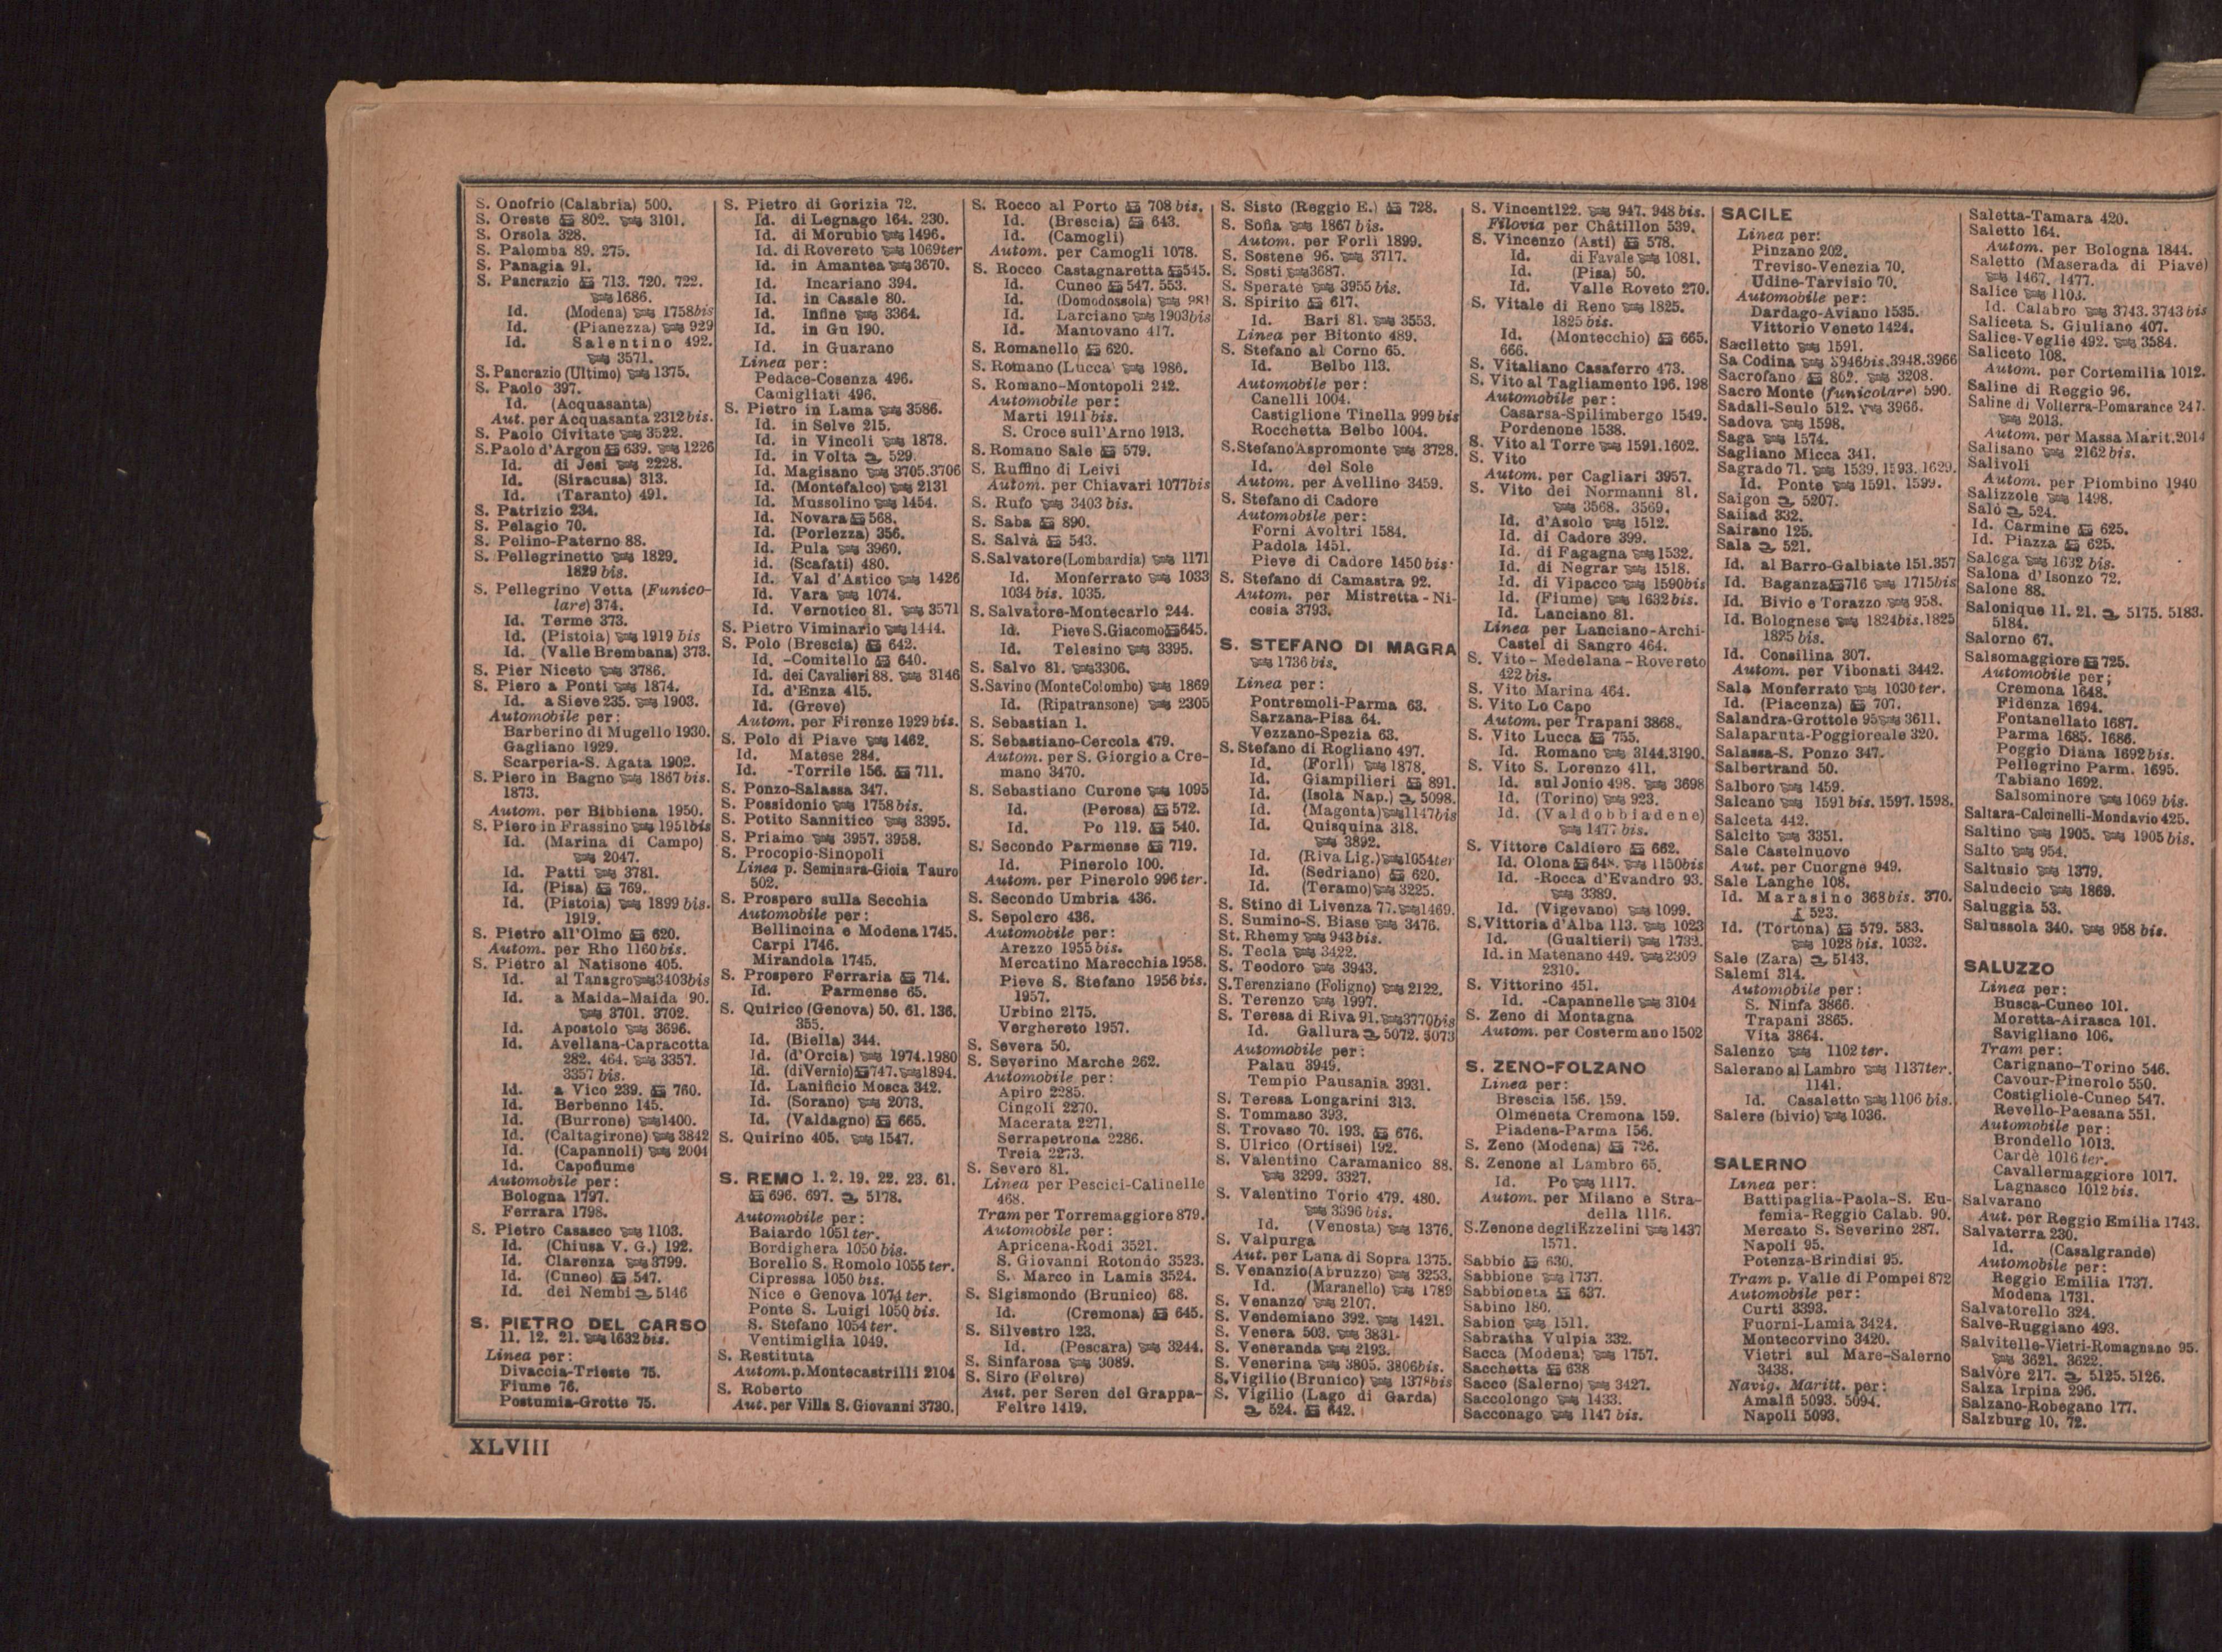 S. Onofrio (Calabria) 500.
S. Oreste 802. 3101.
S. Orsola 328.
S. Palomba 89. 275.
S. Panagia 91.
S. Pancrazio 713. 720. 722.
1686.
Id. (Modena) 1758bis
Id. (Pianezza) 929
Id. Salentino 492.
3571.
S. Pancrazio (Ultimo) 1375.
S. Paolo 397.
Id. (Acquasanta)
Aut. per Acquasanta 2312bis.
S. Paolo Civitate 3522.
S. Paolo d'Argon 639. 1226
Id. di Jesi 2228.
Id. (Siracusa) 313.
Id. (Taranto) 491.
S. Patrizio 234.
S. Pelagio 70.
S. Pelino-Paterno 88.
S. Pellegrinetto 1829.
1829 bis.
S. Pellegrino Vetta (Funico-
lare) 374.
Id. Terme 373.
Id. (Pistoia) 1919 bis
Id. (Valle Brembana) 373.
S. Pier Niceto 3786.
S. Piero a Ponti 1874.
Id. a Sieve 235. 1903.
Automobile per:
Barberino di Mugello 1930.
Gagliano 1929.
Scarperia-S. Agata 1902.
S. Piero in Bagno 1867 bis.
1873.
Autom. per Bibbiena 1950.
S. Piero in Frassino 1951bis
Id. (Marina di Campo)
2047.
Id. Patti 3781.
Id. (Pisa) 769.
Id. (Pistoia) 1899 bis.
1919.
S. Pietro all'Olmo 620.
Autom. per Rho 1160bis.
S. Pietro al Natisone 405.
Id. al Tanagro 3403bis
Id. a Maida-Maida 90.
3701. 3702.
Id. Apostolo 3696.
Id. Avellana-Capracotta
282. 464. 3357.
3357 bis.
Id. a Vico 239. 760.
Id. Berbenno 145.
Id. (Burrone) 1400.
Id. (Caltagirone) 3842
Id. (Capannoli) 2004
Id. Capofiume
Automobile per:
Bologna 1797.
Ferrara 1798.
S. Pietro Casasco 1103.
Id. (Chiusa V. G.) 192.
Id. Clarenza 3799.
Id. (Cuneo) 547.
Id. dei Nembi 5146
S. PIETRO DEL CARSO
11. 12. 21. 1632 bis.
Linea per:
Divaccia-Trieste 75.
Fiume 76.
Postumia-Grotte 75.
S. Pietro di Gorizia 72.
Id. di Legnago 164. 230.
Id. di Morubio 1496.
Id. di Rovereto 1069ter
Id. in Amantea 3670.
Id. Incariano 394.
Id. in Casale 80.
Id. Infine 3364.
Id. in Gu 190.
Id. in Guarano
Linea per:
Pedace-Cosenza 496.
Camigliati 496.
S. Pietro in Lama 3586.
Id. in Selve 215.
Id. in Vincoli 1878.
Id. in Volta 529.
Id. Magisano 3705.3706
Id. (Montefalco) 2131
Id. Mussolino 1454.
Id. Novara 568.
Id. (Porlezza) 356.
Id. Pula 3960.
id. (Scafati) 480.
Id. Val d'Astico 1426
Id. Vara 1074.
Id. Vernotico 81. 3571
S. Pietro Viminario 1444.
S. Polo (Brescia) 642.
Id. -Comitello 640.
Id. dei Cavalieri 88. 3146
Id. d'Enza 415.
Id. (Greve)
Autom. per Firenze 1929 bis.
S. Polo di Piave 1462.
Id. Matese 284.
Id. -Torrile 156. 711.
S. Ponzo-Salassa 347.
S. Possidonio 1758bis.
S. Potito Sannitico 3395.
S. Priamo 3957. 3958.
S. Procopio-Sinopoli
Linea p. Seminara-Gioia Tauro
502.
S. Prospero sulla Secchia
Automobile per:
Bellincina e Modena 1745.
Carpi 1746.
Mirandola 1745.
S. Prospero Ferraria 714.
Id. Parmense 65.
S. Quirico (Genova) 50. 61. 136.
355.
Id. (Biella) 344.
Id. (d'Orcia) 1974.1980
Id. (di Vernio) 747. 1894.
Id. Lanificio Mosca 342.
Id. (Sorano) 2073.
Id. (Valdagno) 665.
S. Quirino 405. 1547.
S. REMO 1. 2. 19. 22. 23. 61.
696. 697. 5178.
Automobile per:
Baiardo 1051ter.
Bordighera 1050bis.
Borello S. Romolo 1055ter.
Cipressa 1050bis.
Nice e Genova 1074ter.
Ponte S. Luigi 1050bis.
S. Stefano 1054ter.
Ventimiglia 1049.
S. Restituta
Autom.p.Montecastrilli 2104
S. Roberto
Aut. per Villa S. Giovanni 3730.
S. Rocco al Porto 708bis.
Id. (Brescia) 643.
Id. (Camogli)
Autom. per Camogli 1078.
S. Rocco Castagnaretta 545.
Id. Cuneo 547. 553.
Id. (Domodossola) 981
Id. Larciano 1903bis
Id. Mantovano 417.
S. Romanello 620.
S. Romano (Lucca) 1986.
S. Romano-Montopoli 242.
Automobile per:
Marti 1911bis.
S. Croce sull'Arno 1913.
S. Romano Sale 579.
S. Ruffino di Leivi
Autom. per Chiavari 1077bis
S. Rufo 3403 bis.
S. Saba 890.
S. Salvà 543.
S.Salvatore(Lombardia) 1171
Id. Monferrato 1033
1034 bis. 1035.
S. Salvatore-Montecarlo 244.
Id. Pieve S.Giacomo 645.
Id. Telesino 3395.
S. Salvo 81. 3306.
S.Savino (MonteColombo) 1869
Id. (Ripatransone) 2305
S. Sebastian 1.
S. Sebastiano-Cercola 479.
Autom. per S. Giorgio a Cre-
mano 3470.
S. Sebastiano Curone 1095
Id. (Perosa) 572.
Id. Po 119. 540.
S. Secondo Parmense 719.
Id. Pinerolo 100.
Autom. per Pinerolo 996ter.
S. Secondo Umbria 436.
S. Sepolcro 436.
Automobile per:
Arezzo 1955bis.
Mercatino Marecchia 1958.
Pieve S. Stefano 1956bis.
1957.
Urbino 2175.
Verghereto 1957.
S. Severa 50.
S. Severino Marche 262.
Automobile per:
Apiro 2285.
Cingoli 2270.
Macerata 2271.
Serrapetrona 2286.
Treia 2273.
S. Severo 81.
Linea per Pescici-Calinelle
468.
Tram per Torremaggiore 879.
Automobile per:
Apricena-Rodi 3521.
S. Giovanni Rotondo 3523.
S. Marco in Lamis 3524.
S. Sigismondo (Brunico) 68.
Id. (Cremona) 645.
S. Silvestro 123.
Id. (Pescara) 3244.
S. Sinfarosa 3089.
S. Siro (Feltre)
Aut. per Seren del Grappa-
Feltre 1419.
S. Sisto (Reggio E.) 728.
S. Sofia 1867 bis.
Autom. per Forlì 1899.
S. Sostene 96. 3717.
S. Sosti 3687.
S. Sperate 3955 bis.
S. Spirito 617.
Id. Bari 81. 3553.
Linea per Bitonto 489.
S. Stefano al Corno 65.
Id. Belbo 113.
Automobile per:
Canelli 1004.
Castiglione Tinella 999bis
Rocchetta Belbo 1004.
S.Stefano Aspromonte 3728.
Id. del Sole
Autom. per Avellino 3459.
S. Stefano di Cadore
Automobile per:
Forni Avoltri 1584.
Padola 1451.
Pieve di Cadore 1450bis.
S. Stefano di Camastra 92.
Autom. per Mistretta-Ni-
cosia 3793.
S. STEFANO DI MAGRA
1736bis.
Linea per:
Pontremoli-Parma 63.
Sarzana-Pisa 64.
Vezzano-Spezia 63.
S. Stefano di Rogliano 497.
Id. (Forlì) 1878.
Id. Giampilieri 891.
Id. (Isola Nap.) 5098.
Id. (Magenta) 1147bis
Id. Quisquina 318.
3892.
Id. (Riva Lig.) 1054ter
Id. (Sedriano) 620.
Id. (Teramo) 3225.
S. Stino di Livenza 77. 1469.
S. Sumino-S. Biase 3476.
St. Rhemy 943bis.
S. Tecla 3422.
S. Teodoro 3943.
S.Terenziano (Foligno) 2122.
S. Terenzo 1997.
S. Teresa di Riva 91. 3770bis
Id. Gallura 5072. 5073
Automobile per:
Palau 3949.
Tempio Pausania 3931.
S. Teresa Longarini 313.
S. Tommaso 393.
S. Trovaso 70. 193. 676.
S. Ulrico (Ortisei) 192.
S. Valentino Caramanico 88.
3299. 3327.
S. Valentino Torio 479. 480.
3396 bis.
Id. (Venosta) 1376.
S. Valpurga
Aut. per Lana di Sopra 1375.
S. Venanzio(Abruzzo) 3253.
Id. (Maranello) 1789
S. Venanzo 2107.
S. Vendemiano 392. 1421.
S. Venera 503. 3831.
S. Veneranda 2193.
S. Venerina 3805. 3806bis.
S.Vigilio (Brunico) 1378bis
S. Vigilio (Lago di Garda)
524. 642.
S. Vincent122. 947. 948bis.
Filovia per Châtillon 539.
S. Vincenzo (Asti) 578.
Id. di Favale 1081.
Id. (Pisa) 50.
Id. Valle Roveto 270.
S. Vitale di Reno 1825.
1825 bis.
Id. (Montecchio) 665.
666.
S. Vitaliano Casaferro 473.
S. Vito al Tagliamento 196. 198
Automobile per:
Casarsa-Spilimbergo 1549.
Pordenone 1538.
S. Vito al Torre 1591.1602.
S. Vito
Autom. per Cagliari 3957.
S. Vito dei Normanni 81.
3568. 3569.
Id. d'Asolo 1512.
Id. di Cadore 399.
Id. di Fagagna 1532.
Id. di Negrar 1518.
Id. di Vipacco 1590bis
Id. (Fiume) 1632bis.
Id. Lanciano 81.
Linea per Lanciano-Archi-
Castel di Sangro 464.
S. Vito-Medelana-Rovereto
422bis.
S. Vito Marina 464.
S. Vito Lo Capo
Autom. per Trapani 3868.
S. Vito Lucca 755.
Id. Romano 3144.3190.
S. Vito S. Lorenzo 411.
Id. sul Jonio 498. 3698
Id. (Torino) 923.
Id. (Valdobbiadene)
1477 bis.
S. Vittore Caldiero 662.
Id. Olona 648. 1150bis
Id. -Rocca d'Evandro 93.
3389.
Id. (Vigevano) 1099.
S.Vittoria d'Alba 113. 1023
Id. (Gualtieri) 1732.
Id. in Matenano 449. 2309
2310.
S. Vittorino 451.
Id. -Capannelle 3104
S. Zeno di Montagna
Autom. per Costermano 1502
S. ZENO-FOLZANO
Linea per:
Brescia 156. 159.
Olmeneta Cremona 159.
Piadena-Parma 156.
S. Zeno (Modena) 726.
S. Zenone al Lambro 65.
Id. Po 1117.
Autom. per Milano e Stra-
della 1116.
S.Zenone degliEzzelini 1437
1571.
Sabbio 630.
Sabbione 1737.
Sabbioneta 637.
Sabino 180.
Sabion 1511.
Sabratha Vulpia 332.
Sacca (Modena) 1757.
Sacchetta 638
Sacco (Salerno) 3427.
Saccolongo 1433.
Sacconago 1147 bis.
SACILE
Linea per:
Pinzano 202.
Treviso-Venezia 70.
Udine-Tarvisio 70.
Automobile per:
Dardago-Aviano 1535.
Vittorio Veneto 1424.
Saciletto 1591.
Sa Codina 3946bis.3948.3966
Sacrofano 862. 3208.
Sacro Monte (funicolare) 590.
Sadali-Seulo 512. 3966.
Sadova 1598.
Saga 1574.
Sagliano Micca 341.
Sagrado 71. 1539. 1593. 1629.
Id. Ponte 1591. 1599.
Saigon 5207.
Saiiad 332.
Sairano 125.
Sala 521.
Id. al Barro-Galbiate 151.357
Id. Baganza 716 1715bis
Id. Bivio e Torazzo 958.
Id. Bolognese 1824bis.1825
1825 bis.
Id. Consilina 307.
Autom. per Vibonati 3442.
Sala Monferrato 1030ter.
Id. (Piacenza) 707.
Salandra-Grottole 95 3611.
Salaparuta-Poggioreale 320.
Salassa-S. Ponzo 347.
Salbertrand 50.
Salboro 1459.
Salcano 1591 bis. 1597. 1598.
Salceta 442.
Salcito 3351.
Sale Castelnuovo
Aut. per Cuorgne 949.
Sale Langhe 108.
Id. Marasino 368bis. 370.
523.
Id. (Tortona) 579. 583.
1028 bis. 1032.
Sale (Zara) 5143.
Salemi 314.
Automobile per:
S. Ninfa 3866.
Trapani 3865.
Vita 3864.
Salenzo 1102ter.
Salerano al Lambro 1137ter.
1141.
Id. Casaletto 1106 bis.
Salere (bivio) 1036.
SALERNO
Linea per:
Battipaglia-Paola-S. Eu-
femia-Reggio Calab. 90.
Mercato S. Severino 287.
Napoli 95.
Potenza-Brindisi 95.
Tram p. Valle di Pompei 872
Automobile per:
Curti 3393.
Fuorni-Lamia 3424.
Montecorvino 3420.
Vietri sul Mare-Salerno
3438.
Navig. Maritt. per:
Amalfi 5093. 5094.
Napoli 5093.
Saletta-Tamara 420.
Saletto 164.
Autom. per Bologna 1844.
Saletto (Maserada di Piave)
1467. 1477.
Salice 1103.
Id. Calabro 3743. 3743bis
Saliceta S. Giuliano 407.
Salice-Veglie 492. 3584.
Saliceto 108.
Autom. per Cortemilia 1012.
Saline di Reggio 96.
Saline di Volterra-Pomarance 247.
2013.
Autom. per Massa Marit.2014
Salisano 2162bis.
Salivoli
Autom. per Piombino 1940
Salizzole 1498.
Salò 524.
Id. Carmine 625.
Id. Piazza 625.
Saloga 1632 bis.
Salona d'Isonzo 72.
Salone 88.
Salonique 11. 21. 5175. 5183.
5184.
Salorno 67.
Salsomaggiore 725.
Automobile per;
Cremona 1648.
Fidenza 1694.
Fontanellato 1687.
Parma 1685. 1686.
Poggio Diana 1692bis.
Pellegrino Parm. 1695.
Tabiano 1692.
Salsominore 1069 bis.
Saltara-Calcinelli-Mondavio 425.
Saltino 1905. 1905 bis.
Salto 954.
Saltusio 1379.
Saludecio 1869.
Saluggia 53.
Salussola 340. 958 bis.
SALUZZO
Linea per:
Busca-Cuneo 101.
Moretta-Airasca 101.
Savigliano 106.
Tram per:
Carignano-Torino 546.
Cavour-Pinerolo 550.
Costigliole-Cuneo 547.
Revello-Paesana 551.
Automobile per:
Brondello 1013.
Cardè 1016ter.
Cavallermaggiore 1017.
Lagnasco 1012bis.
Salvarano
Aut. per Reggio Emilia 1743.
Salvaterra 230.
Id. (Casalgrande)
Automobile per:
Reggio Emilia 1737.
Modena 1731.
Salvatorello 324.
Salve-Ruggiano 493.
Salvitelle-Vietri-Romagnano 95.
3621. 3622.
Salvòre 217. 5125. 5126.
Salza Irpina 296.
Salzano-Robegano 177.
Salzburg 10. 72.
XLVIII